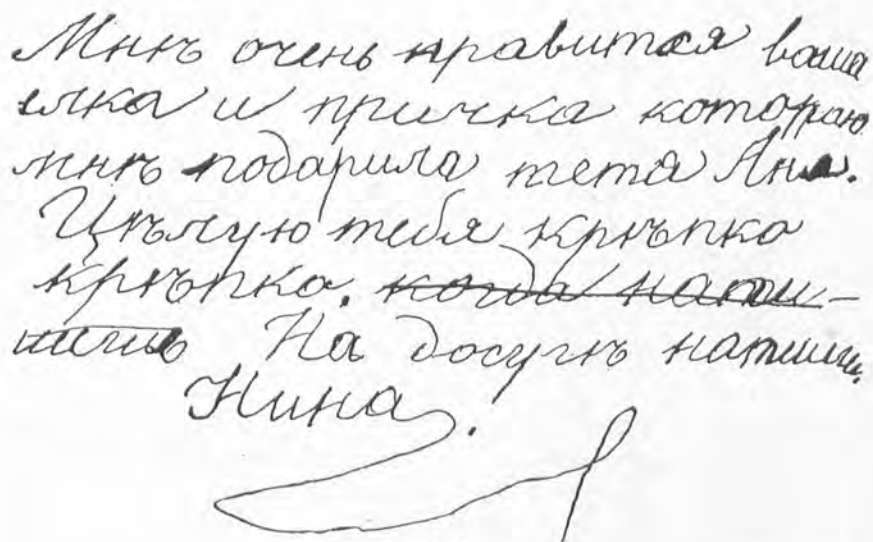 Мнѣ очень нравится ваша
елка и птичка которою
мнѣ подарила тетя Аня.
Цѣлую тебя крѣпко
крѣпко. когда напи-
шешь На досугѣ напиши.
Нина.